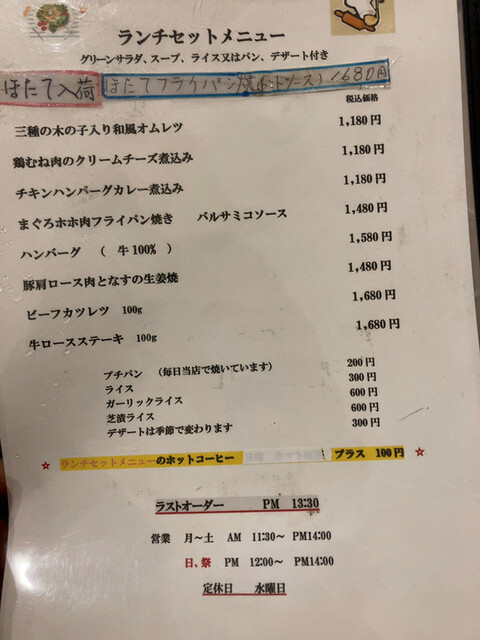 ランチセットメニュー
グリーンサラダ、スープ、ライス又はパン、デザート付き
ほたて入荷 ほたてフライパン焼(ホットソース) 1680円
税込価格
三種の木の子入り和風オムレツ 1,180円
鶏むね肉のクリームチーズ煮込み 1,180円
チキンハンバーグカレー煮込み 1,180円
まぐろホホ肉フライパン焼き バルサミコソース 1,480円
ハンバーグ ( 牛100% ) 1,580円
豚肩ロース肉となすの生姜焼 1,480円
ビーフカツレツ 100g 1,680円
牛ロースステーキ 100g 1,680円
プチパン (毎日当店で焼いています) 200円
ライス 300円
ガーリックライス 600円
芝漬ライス 600円
デザートは季節で変わります 300円
☆ ランチセットメニューのホットコーヒー プラス 100円 ☆
ラストオーダー PM 13:30
営業 月～土 AM 11:30～ PM14:00
日、祭 PM 12:00～ PM14:00
定休日 水曜日